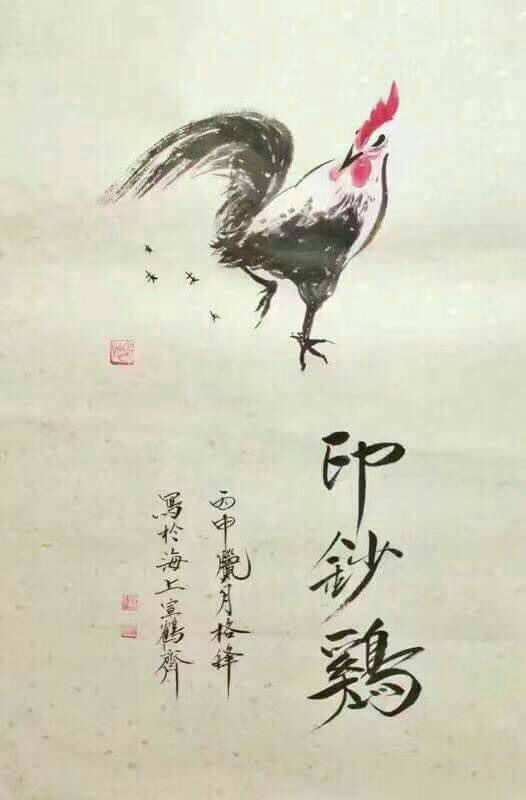 印鈔鷄
丙申臘月格絳
寫於海上宣鶴齊